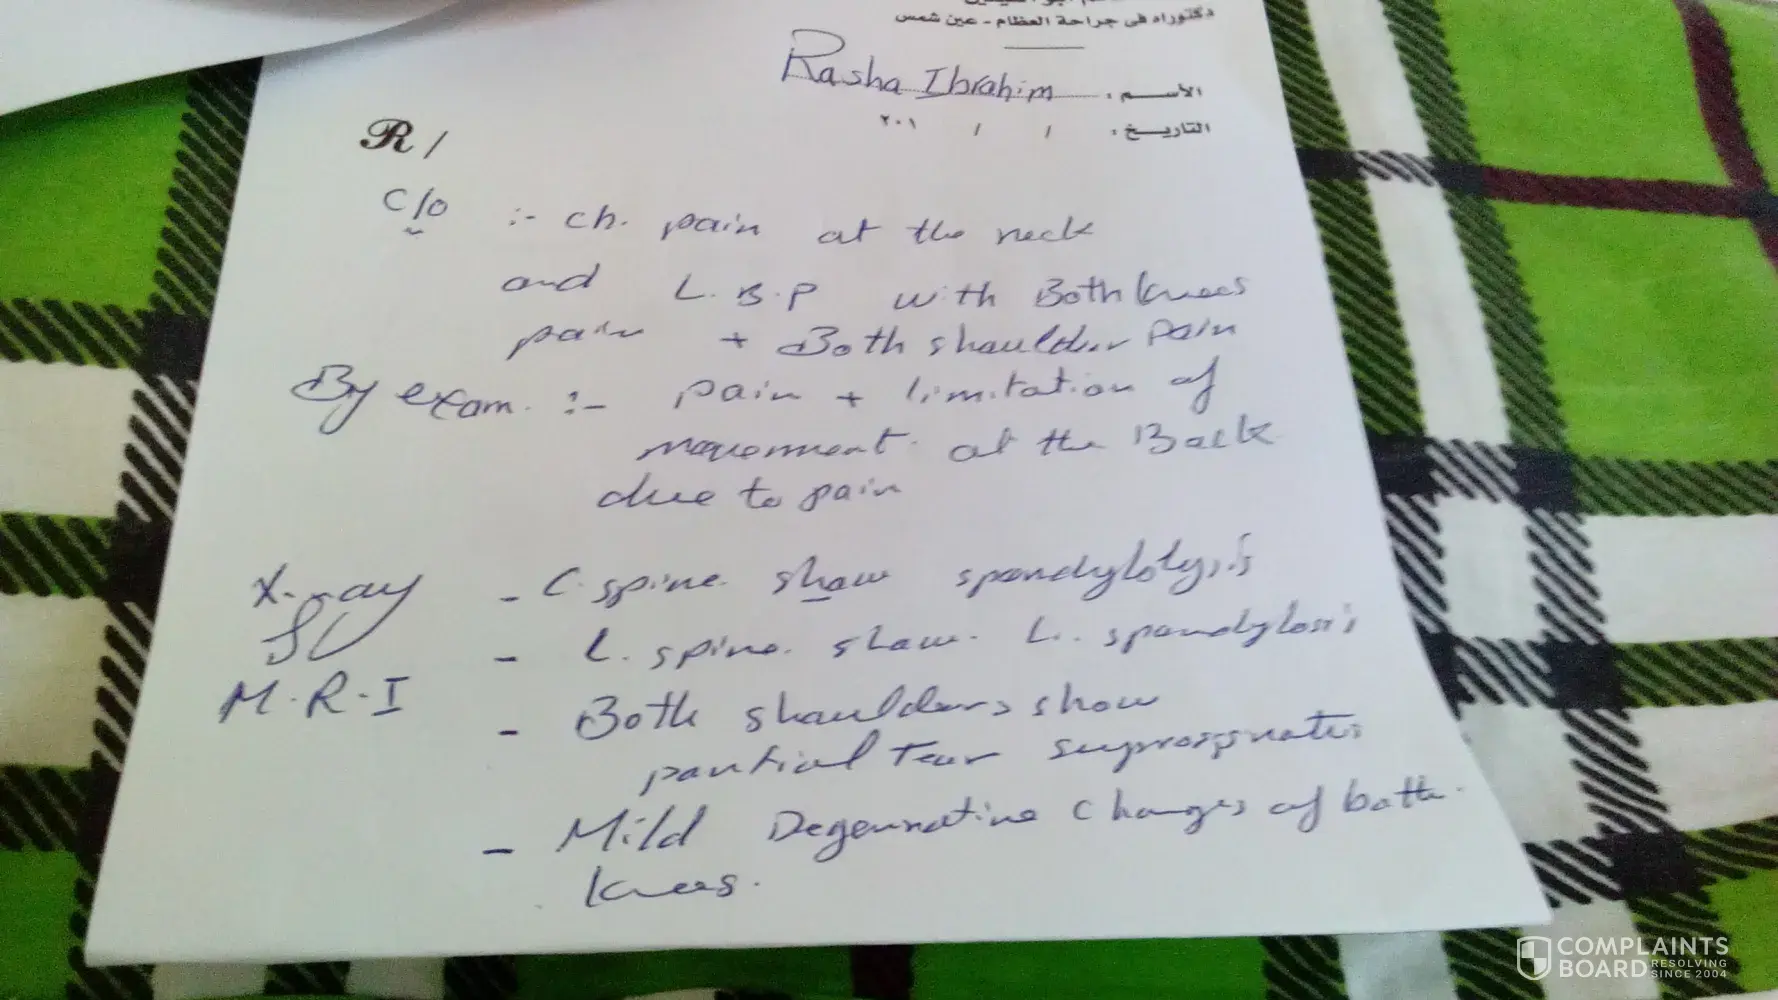 دكتوراه فى جراحة العظام - عين شمس
الأسم : Rasha Ibrahim
التاريخ : / / ٢٠١
R/
C/O :- ch. pain at the neck
and L.B.P with Both knees
pain + Both shoulder pain
By exam. :- pain + limitation of
movement at the Back
due to pain
X-ray - C. spine. show spondylolysis
- L. spine. show. L. spondylosis
M.R.I - Both shoulders show
partial Tear suprospinatus
- Mild Degenrative changes of both
knees.
COMPLAINTS
BOARD RESOLVING
SINCE 2004